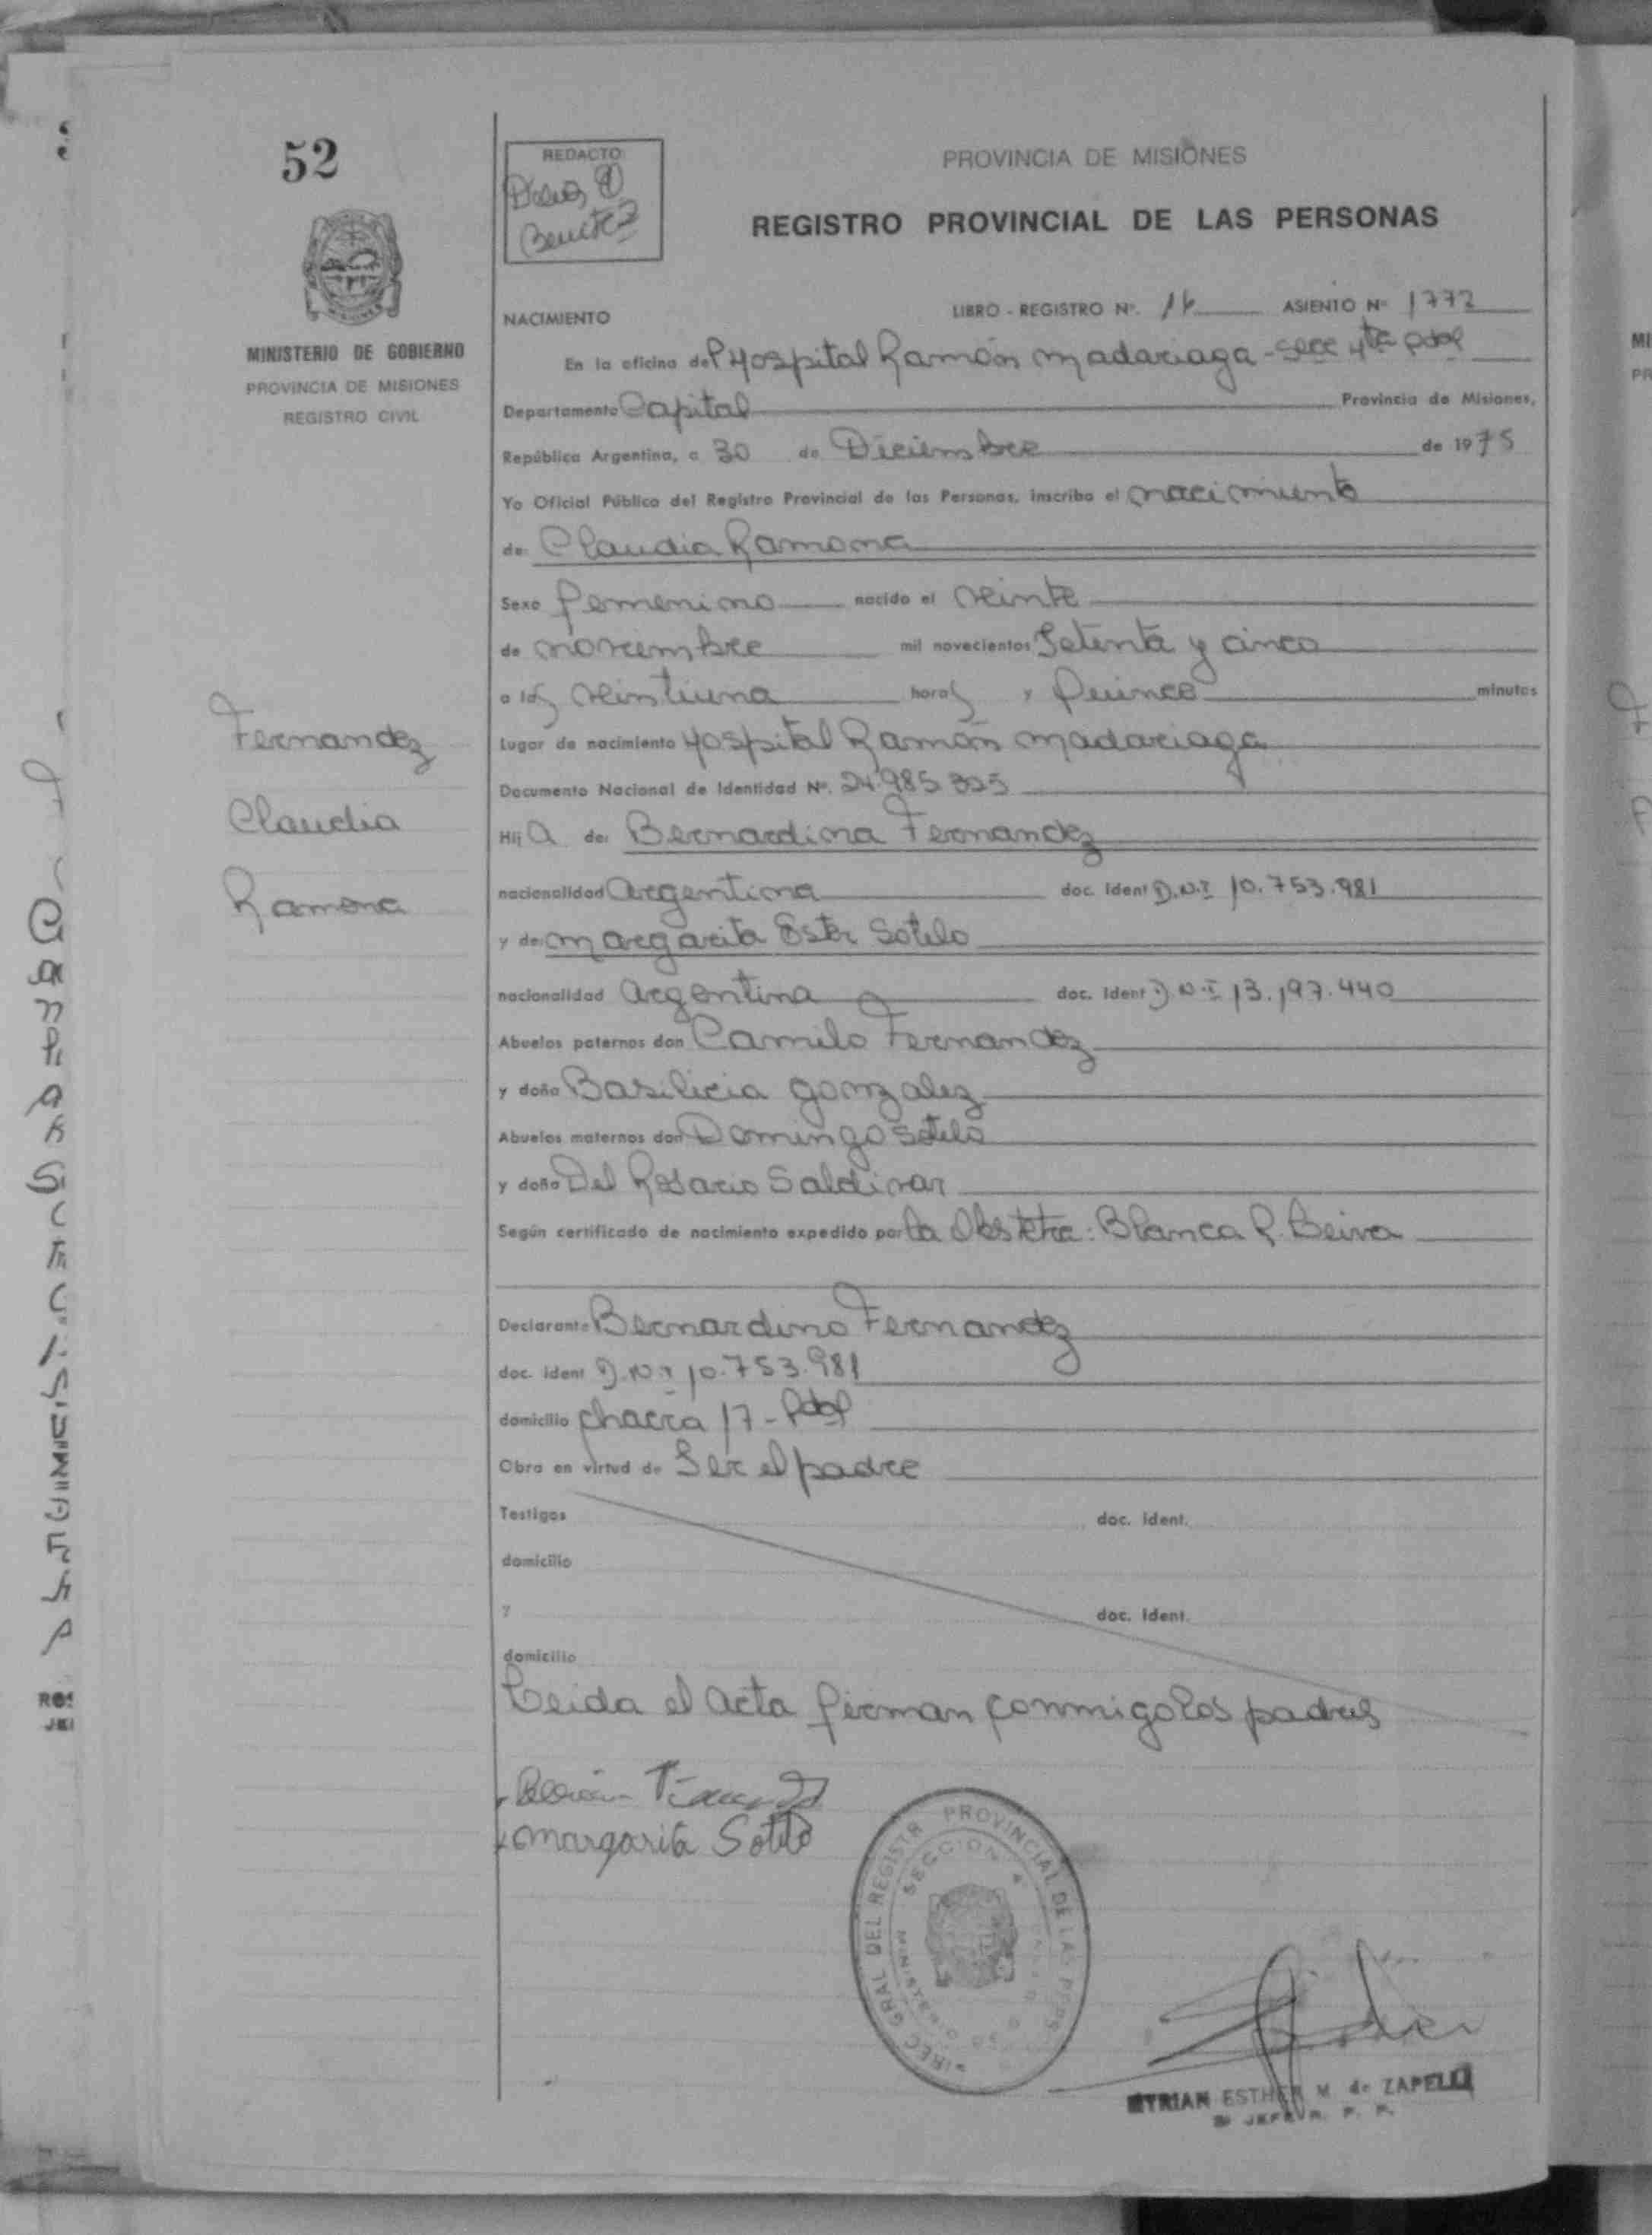 52
REDACTO
Benitez
PROVINCIA DE MISIONES
REGISTRO PROVINCIAL DE LAS PERSONAS
MINISTERIO DE GOBIERNO
PROVINCIA DE MISIONES
REGISTRO CIVIL
NACIMIENTO LIBRO - REGISTRO Nº. 16 ASIENTO Nº 1772
En la oficina del Hospital Ramón Madariaga - Secc 4ta Pdas
Departamento Capital Provincia de Misiones,
República Argentina, a 30 de Diciembre de 1975
Yo Oficial Público del Registro Provincial de las Personas, inscribo el nacimiento
de: Claudia Ramona
Sexo femenino nacido el veinte
de noviembre mil novecientos Setenta y cinco
a las veintiuna horas y quince minutos
Lugar de nacimiento Hospital Ramón Madariaga
Documento Nacional de Identidad Nº. 24.985.325
Hija de: Bernardina Fernandez
nacionalidad argentina doc. Ident D.N.I 10.753.981
y de: Margarita Ester Sotelo
nacionalidad argentina doc. Ident D.N.I 13.197.440
Abuelos paternos don Camilo Fernandez
y doña Basilicia Gonzalez
Abuelos maternos don Domingo Sotelo
y doña Del Rosario Saldivar
Según certificado de nacimiento expedido por la Obstetra: Blanca R. Beiva
Declarante Bernardino Fernandez
doc. Ident D.N.I 10.753.981
domicilio chacra 17 - Pdas
Obra en virtud de Ser el padre
Testigos doc. Ident.
domicilio
y doc. Ident.
domicilio
Leida el acta firman conmigo los padres
Margarita Sotelo
Fernandez
Claudia
Ramona
PROVINCIAL DE LAS PERS
GRAL DEL REGISTR
SECCION 4
MYRIAN ESTHER M de ZAPELLI